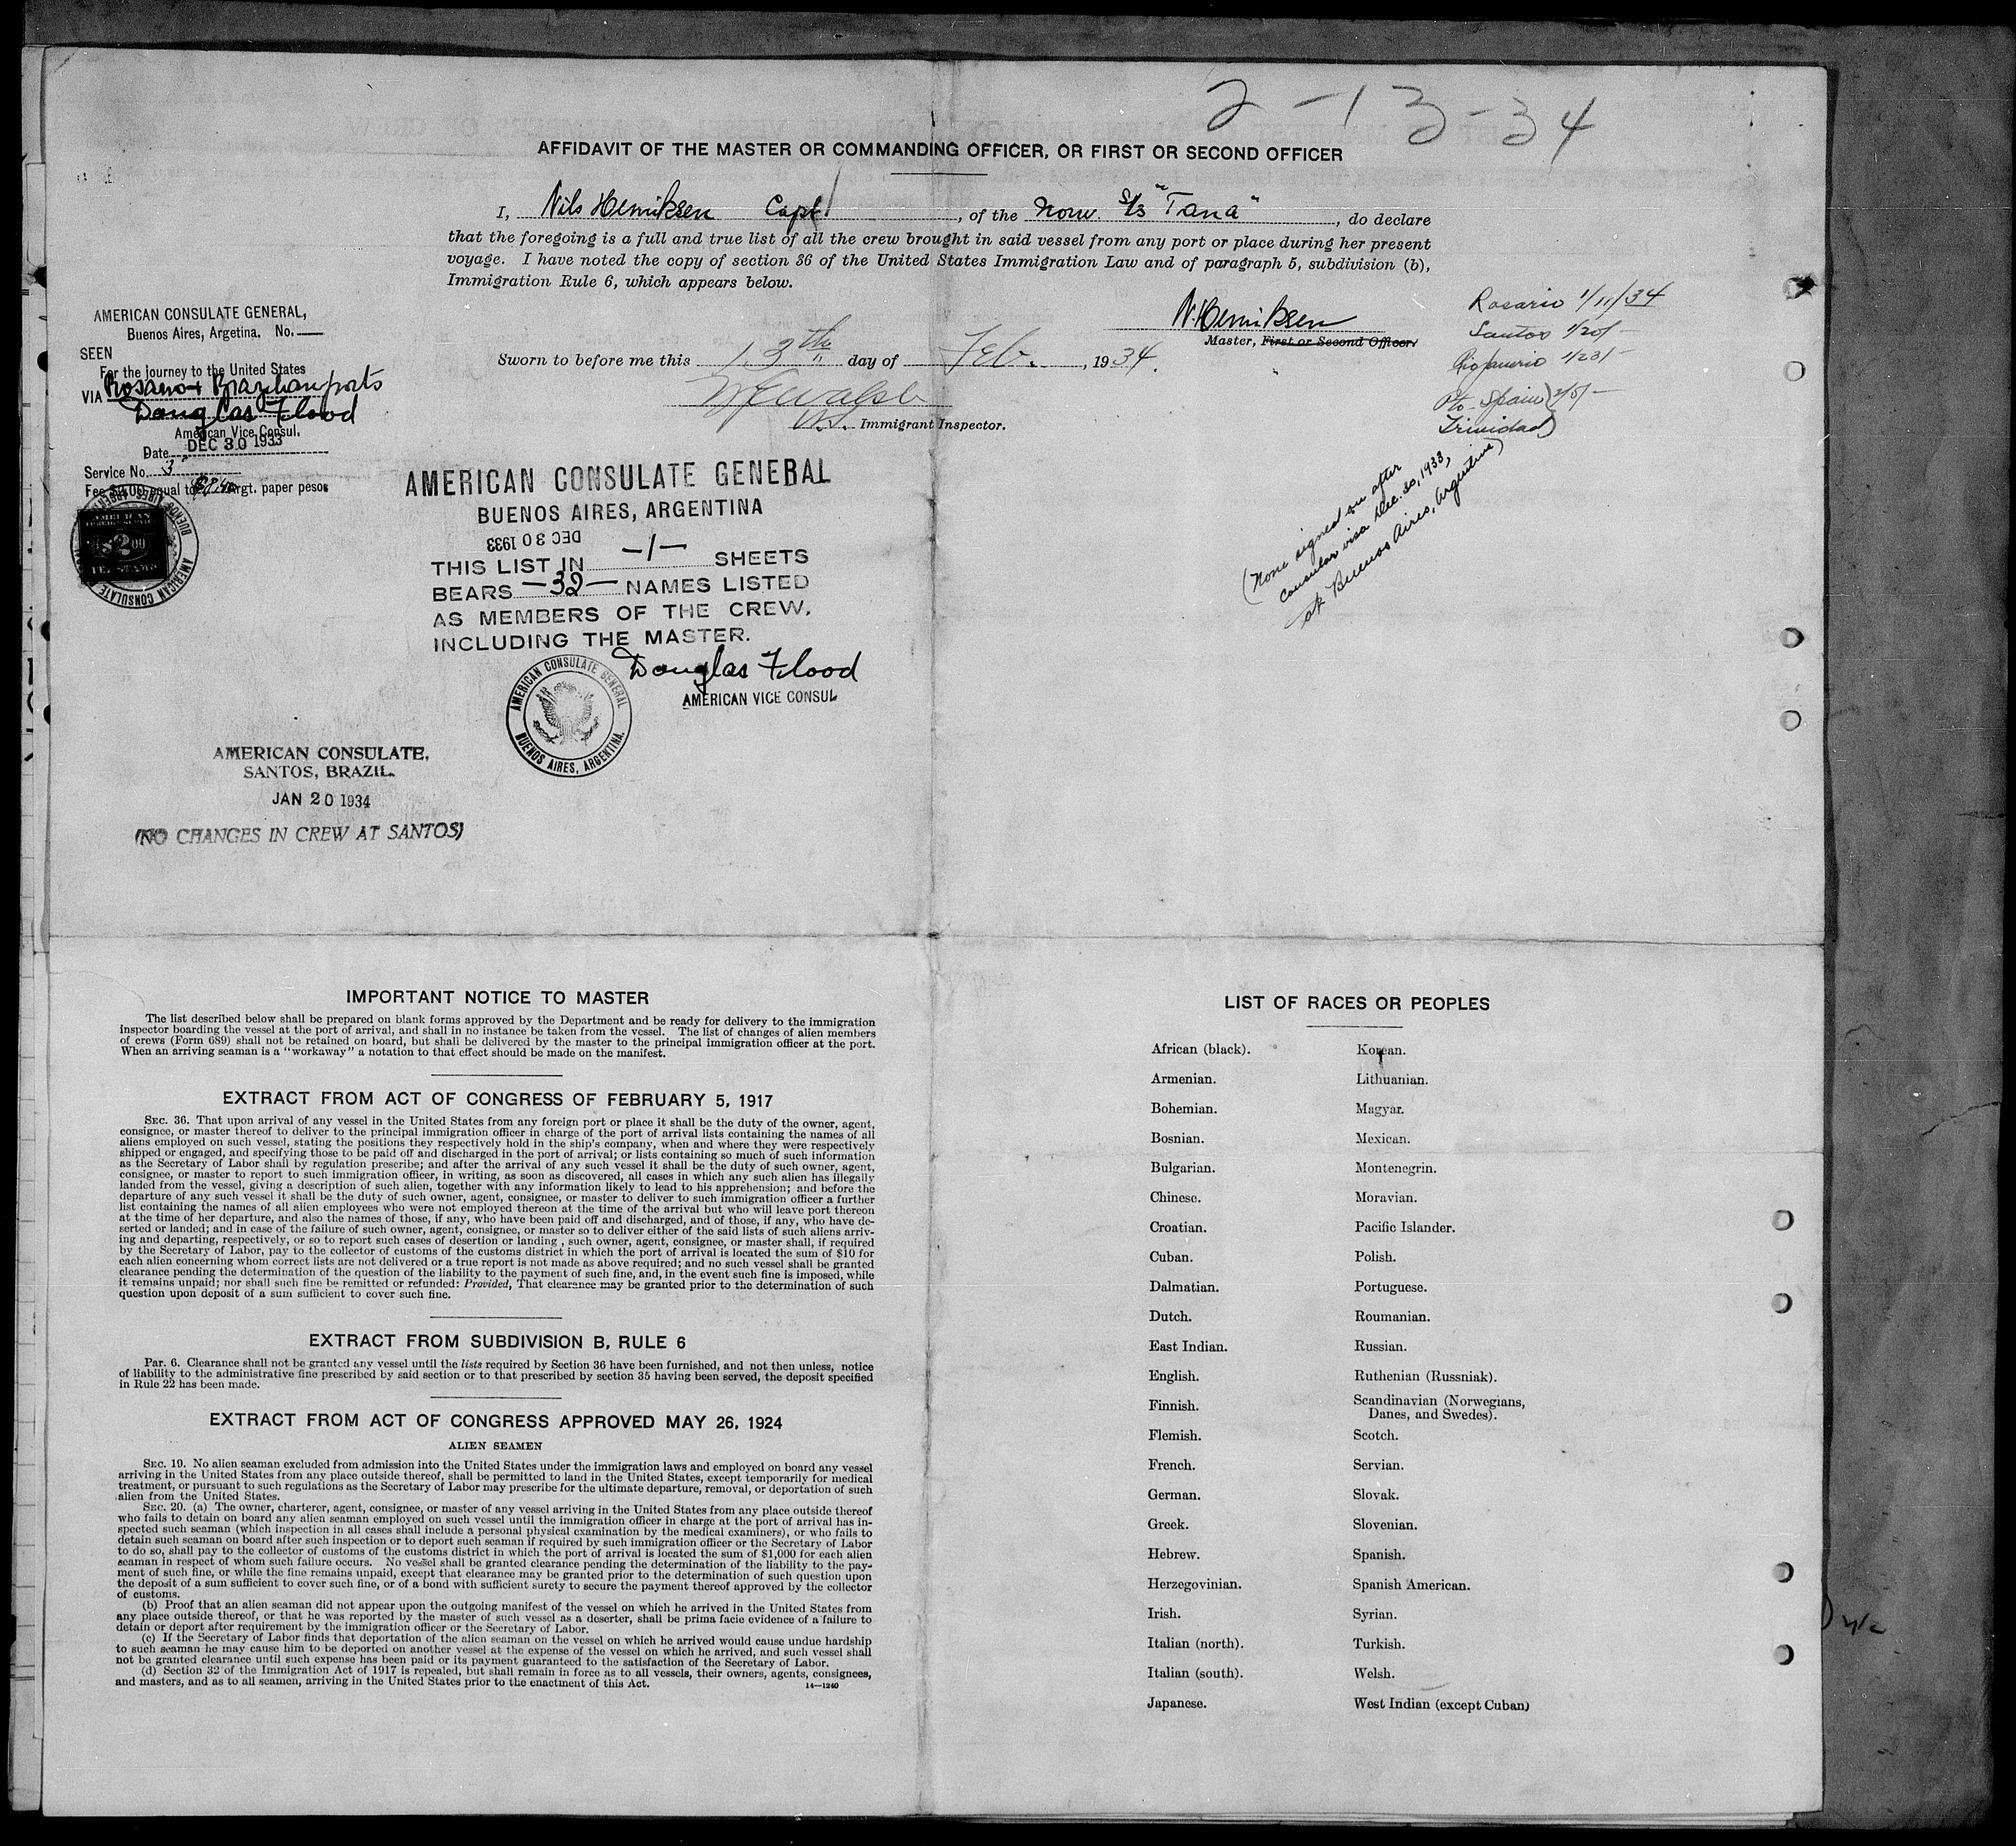 2-13-34
AFFIDAVIT OF THE MASTER OR COMMANDING OFFICER, OR FIRST OR SECOND OFFICER
I, Nils Henriksen Capt. , of the Norw. S/S "Tana" , do declare
that the foregoing is a full and true list of all the crew brought in said vessel from any port or place during her present
voyage. I have noted the copy of section 36 of the United States Immigration Law and of paragraph 5, subdivision (b),
Immigration Rule 6, which appears below.
N. Henriksen
Master, First or Second Officer.
Sworn to before me this 13th day of Feb. , 1934.
U.S. Immigrant Inspector.
Rosario 1/11/34
Santos 1/20/-
Rio Janerio 1/23/-
Pto-Spain) 2/5/-
Trinidad)
(None signed on after
Consular visa Dec. 30, 1933,
at Buenos Aires, Argentina)
AMERICAN CONSULATE GENERAL,
Buenos Aires, Argetina. No.
SEEN
For the journey to the United States
VIA Rosario + Brazilian ports
Douglas Flood
American Vice Consul.
Date DEC 30 1933
Service No. 3
Argt. paper pesos
AMERICAN
FOREIGN SERVICE
$2 00
FEE STAMP
AMERICAN CONSULATE
BUENOS AIRES
AMERICAN CONSULATE GENERAL
BUENOS AIRES, ARGENTINA
DEC 30 1933
THIS LIST IN -1- SHEETS
BEARS -32- NAMES LISTED
AS MEMBERS OF THE CREW,
INCLUDING THE MASTER.
Douglas Flood
AMERICAN VICE CONSUL
AMERICAN CONSULATE GENERAL
BUENOS AIRES, ARGENTINA.
AMERICAN CONSULATE,
SANTOS, BRAZIL.
JAN 20 1934
(NO CHANGES IN CREW AT SANTOS)
IMPORTANT NOTICE TO MASTER
The list described below shall be prepared on blank forms approved by the Department and be ready for delivery to the immigration
inspector boarding the vessel at the port of arrival, and shall in no instance be taken from the vessel. The list of changes of alien members
of crews (Form 689) shall not be retained on board, but shall be delivered by the master to the principal immigration officer at the port.
When an arriving seaman is a "workaway" a notation to that effect should be made on the manifest.
EXTRACT FROM ACT OF CONGRESS OF FEBRUARY 5, 1917
SEC. 36. That upon arrival of any vessel in the United States from any foreign port or place it shall be the duty of the owner, agent,
consignee, or master thereof to deliver to the principal immigration officer in charge of the port of arrival lists containing the names of all
aliens employed on such vessel, stating the positions they respectively hold in the ship's company, when and where they were respectively
shipped or engaged, and specifying those to be paid off and discharged in the port of arrival; or lists containing so much of such information
as the Secretary of Labor shall by regulation prescribe; and after the arrival of any such vessel it shall be the duty of such owner, agent,
consignee, or master to report to such immigration officer, in writing, as soon as discovered, all cases in which any such alien has illegally
landed from the vessel, giving a description of such alien, together with any information likely to lead to his apprehension; and before the
departure of any such vessel it shall be the duty of such owner, agent, consignee, or master to deliver to such immigration officer a further
list containing the names of all alien employees who were not employed thereon at the time of the arrival but who will leave port thereon
at the time of her departure, and also the names of those, if any, who have been paid off and discharged, and of those, if any, who have de-
serted or landed; and in case of the failure of such owner, agent, consignee, or master so to deliver either of the said lists of such aliens arriv-
ing and departing, respectively, or so to report such cases of desertion or landing , such owner, agent, consignee, or master shall, if required
by the Secretary of Labor, pay to the collector of customs of the customs district in which the port of arrival is located the sum of $10 for
each alien concerning whom correct lists are not delivered or a true report is not made as above required; and no such vessel shall be granted
clearance pending the determination of the question of the liability to the payment of such fine, and, in the event such fine is imposed, while
it remains unpaid; nor shall such fine be remitted or refunded: Provided, That clearance may be granted prior to the determination of such
question upon deposit of a sum sufficient to cover such fine.
EXTRACT FROM SUBDIVISION B, RULE 6
Par. 6. Clearance shall not be granted any vessel until the lists required by Section 36 have been furnished, and not then unless, notice
of liability to the administrative fine prescribed by said section or to that prescribed by section 35 having been served, the deposit specified
in Rule 22 has been made.
EXTRACT FROM ACT OF CONGRESS APPROVED MAY 26, 1924
ALIEN SEAMEN
SEC. 19. No alien seaman excluded from admission into the United States under the immigration laws and employed on board any vessel
arriving in the United States from any place outside thereof, shall be permitted to land in the United States, except temporarily for medical
treatment, or pursuant to such regulations as the Secretary of Labor may prescribe for the ultimate departure, removal, or deportation of such
alien from the United States.
SEC. 20. (a) The owner, charterer, agent, consignee, or master of any vessel arriving in the United States from any place outside thereof
who fails to detain on board any alien seaman employed on such vessel until the immigration officer in charge at the port of arrival has in-
spected such seaman (which inspection in all cases shall include a personal physical examination by the medical examiners), or who fails to
detain such seaman on board after such inspection or to deport such seaman if required by such immigration officer or the Secretary of Labor
to do so, shall pay to the collector of customs of the customs district in which the port of arrival is located the sum of $1,000 for each alien
seaman in respect of whom such failure occurs. No vessel shall be granted clearance pending the determination of the liability to the pay-
ment of such fine, or while the fine remains unpaid, except that clearance may be granted prior to the determination of such question upon
the deposit of a sum sufficient to cover such fine, or of a bond with sufficient surety to secure the payment thereof approved by the collector
of customs.
(b) Proof that an alien seaman did not appear upon the outgoing manifest of the vessel on which he arrived in the United States from
any place outside thereof, or that he was reported by the master of such vessel as a deserter, shall be prima facie evidence of a failure to
detain or deport after requirement by the immigration officer or the Secretary of Labor.
(c) If the Secretary of Labor finds that deportation of the alien seaman on the vessel on which he arrived would cause undue hardship
to such seaman he may cause him to be deported on another vessel at the expense of the vessel on which he arrived, and such vessel shall
not be granted clearance until such expense has been paid or its payment guaranteed to the satisfaction of the Secretary of Labor.
(d) Section 32 of the Immigration Act of 1917 is repealed, but shall remain in force as to all vessels, their owners, agents, consignees,
and masters, and as to all seamen, arriving in the United States prior to the enactment of this Act.
14—1240
LIST OF RACES OR PEOPLES
African (black). Korean.
Armenian. Lithuanian.
Bohemian. Magyar.
Bosnian. Mexican.
Bulgarian. Montenegrin.
Chinese. Moravian.
Croatian. Pacific Islander.
Cuban. Polish.
Dalmatian. Portuguese.
Dutch. Roumanian.
East Indian. Russian.
English. Ruthenian (Russniak).
Finnish. Scandinavian (Norwegians,
Danes, and Swedes).
Flemish. Scotch.
French. Servian.
German. Slovak.
Greek. Slovenian.
Hebrew. Spanish.
Herzegovinian. Spanish American.
Irish. Syrian.
Italian (north). Turkish.
Italian (south). Welsh.
Japanese. West Indian (except Cuban)